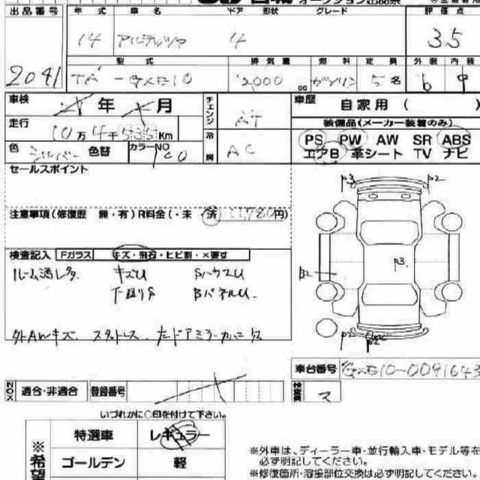 オークション出品票
出品番号 年式 車名 ドア 形状 グレード 評価点
14 アルテッツァ 4 3.5
型式 排気量 燃料 定員 外装 内装
2041 TA-GXE10 2000 ガソリン 5名 b
車検 年 月 チェンジ AT 車歴 自家用 (
走行 10万4千535Km 冷房 AC 装備品(メーカー装着のみ)
色 シルバー 色替 カラーNO 1C0 PS PW AW SR ABS
エアB 革シート TV ナビ
セールスポイント
P3 P2
注意事項(修復歴 無・有)R料金(・未 済 11,780円)
検査記入 Fガラス キズ・飛石・ヒビ割・×要す
ルーム キズU
P3
B2
下回りS BパネルU
外AWキズ スタットレス 左ドアミラーカバー
車台番号 GXE10-0091643
BOX 適合・非適合 登録番号 検査員
いづれかに○印を付けて下さい。
※希望 特選車 レギュラー
ゴールデン 軽
※外車は、ディーラー車・並行輸入車・モデル等を
必ず明記してください。
※修復箇所・溶接部位交換は必ず明記してください。